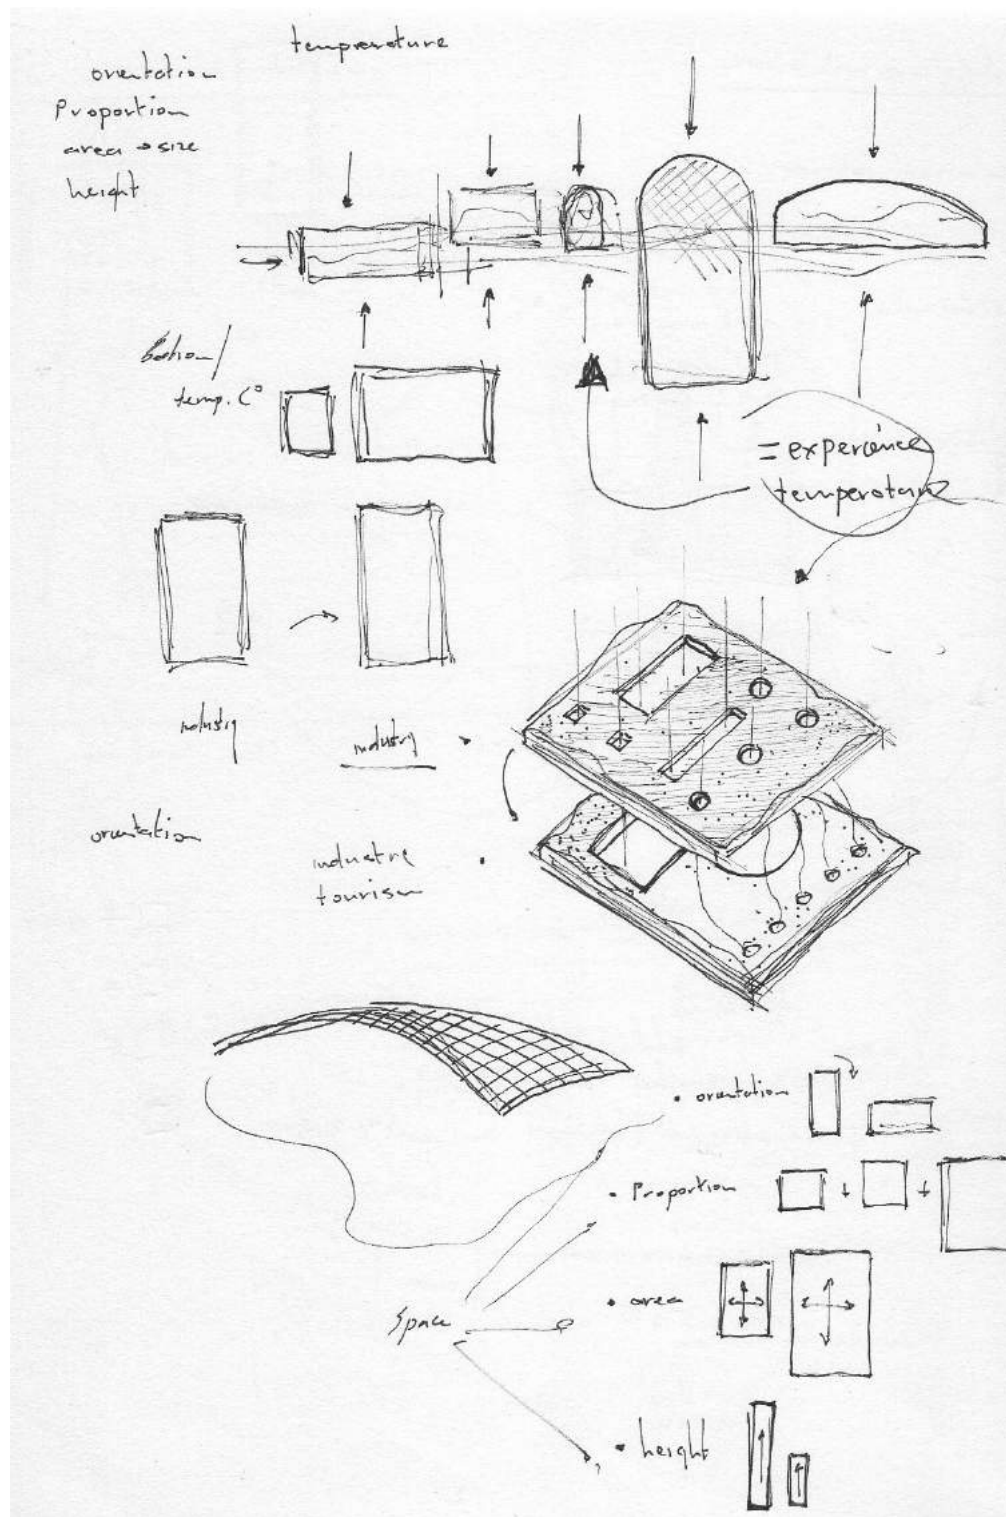 temperature
orientation
Proportion
area → size
height
temp. C°
= experience
temperature
industry
industry
orientation
industrie
tourism
• orientation
• Proportion
• area
Space
• height